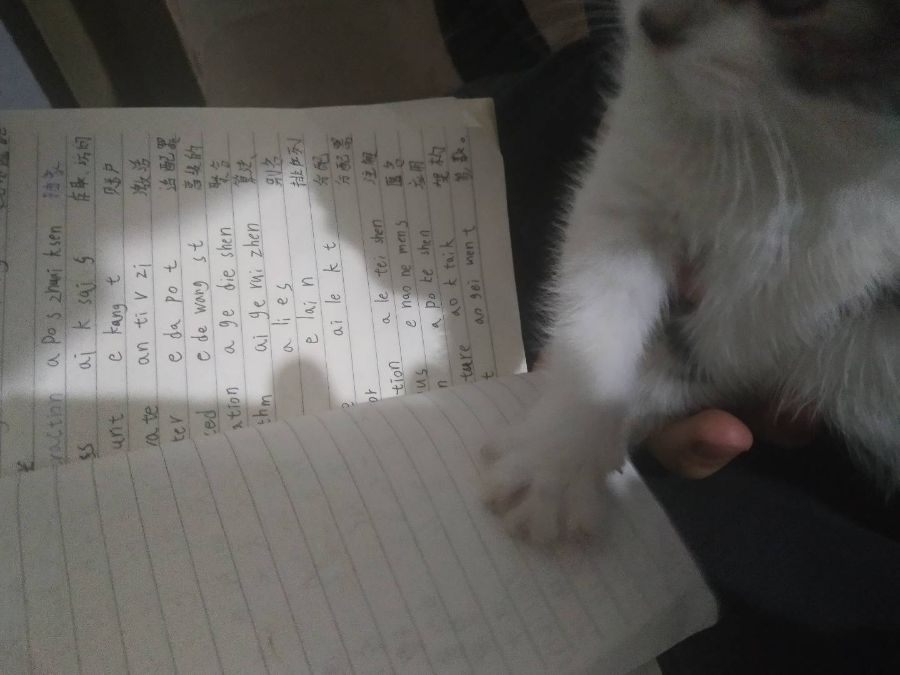 a pos zhuai ksen
ss ai k sai s 存取、访问
unt e kang t 账户
vate an ti v zi 激活
ter e da po t 适配器
ced e de wang st 高级的
ation a ge die shen 聚合
thm ai ge ruai zhen 算法
a li es 别名
e lai n 排列
ai le k t 分配
or 分配器
tion a le tei shen 注解
ous e nao ne mens 匿名
n a po ke shen 应用
ture ao k taik 架构
t ao gei men t 参数。